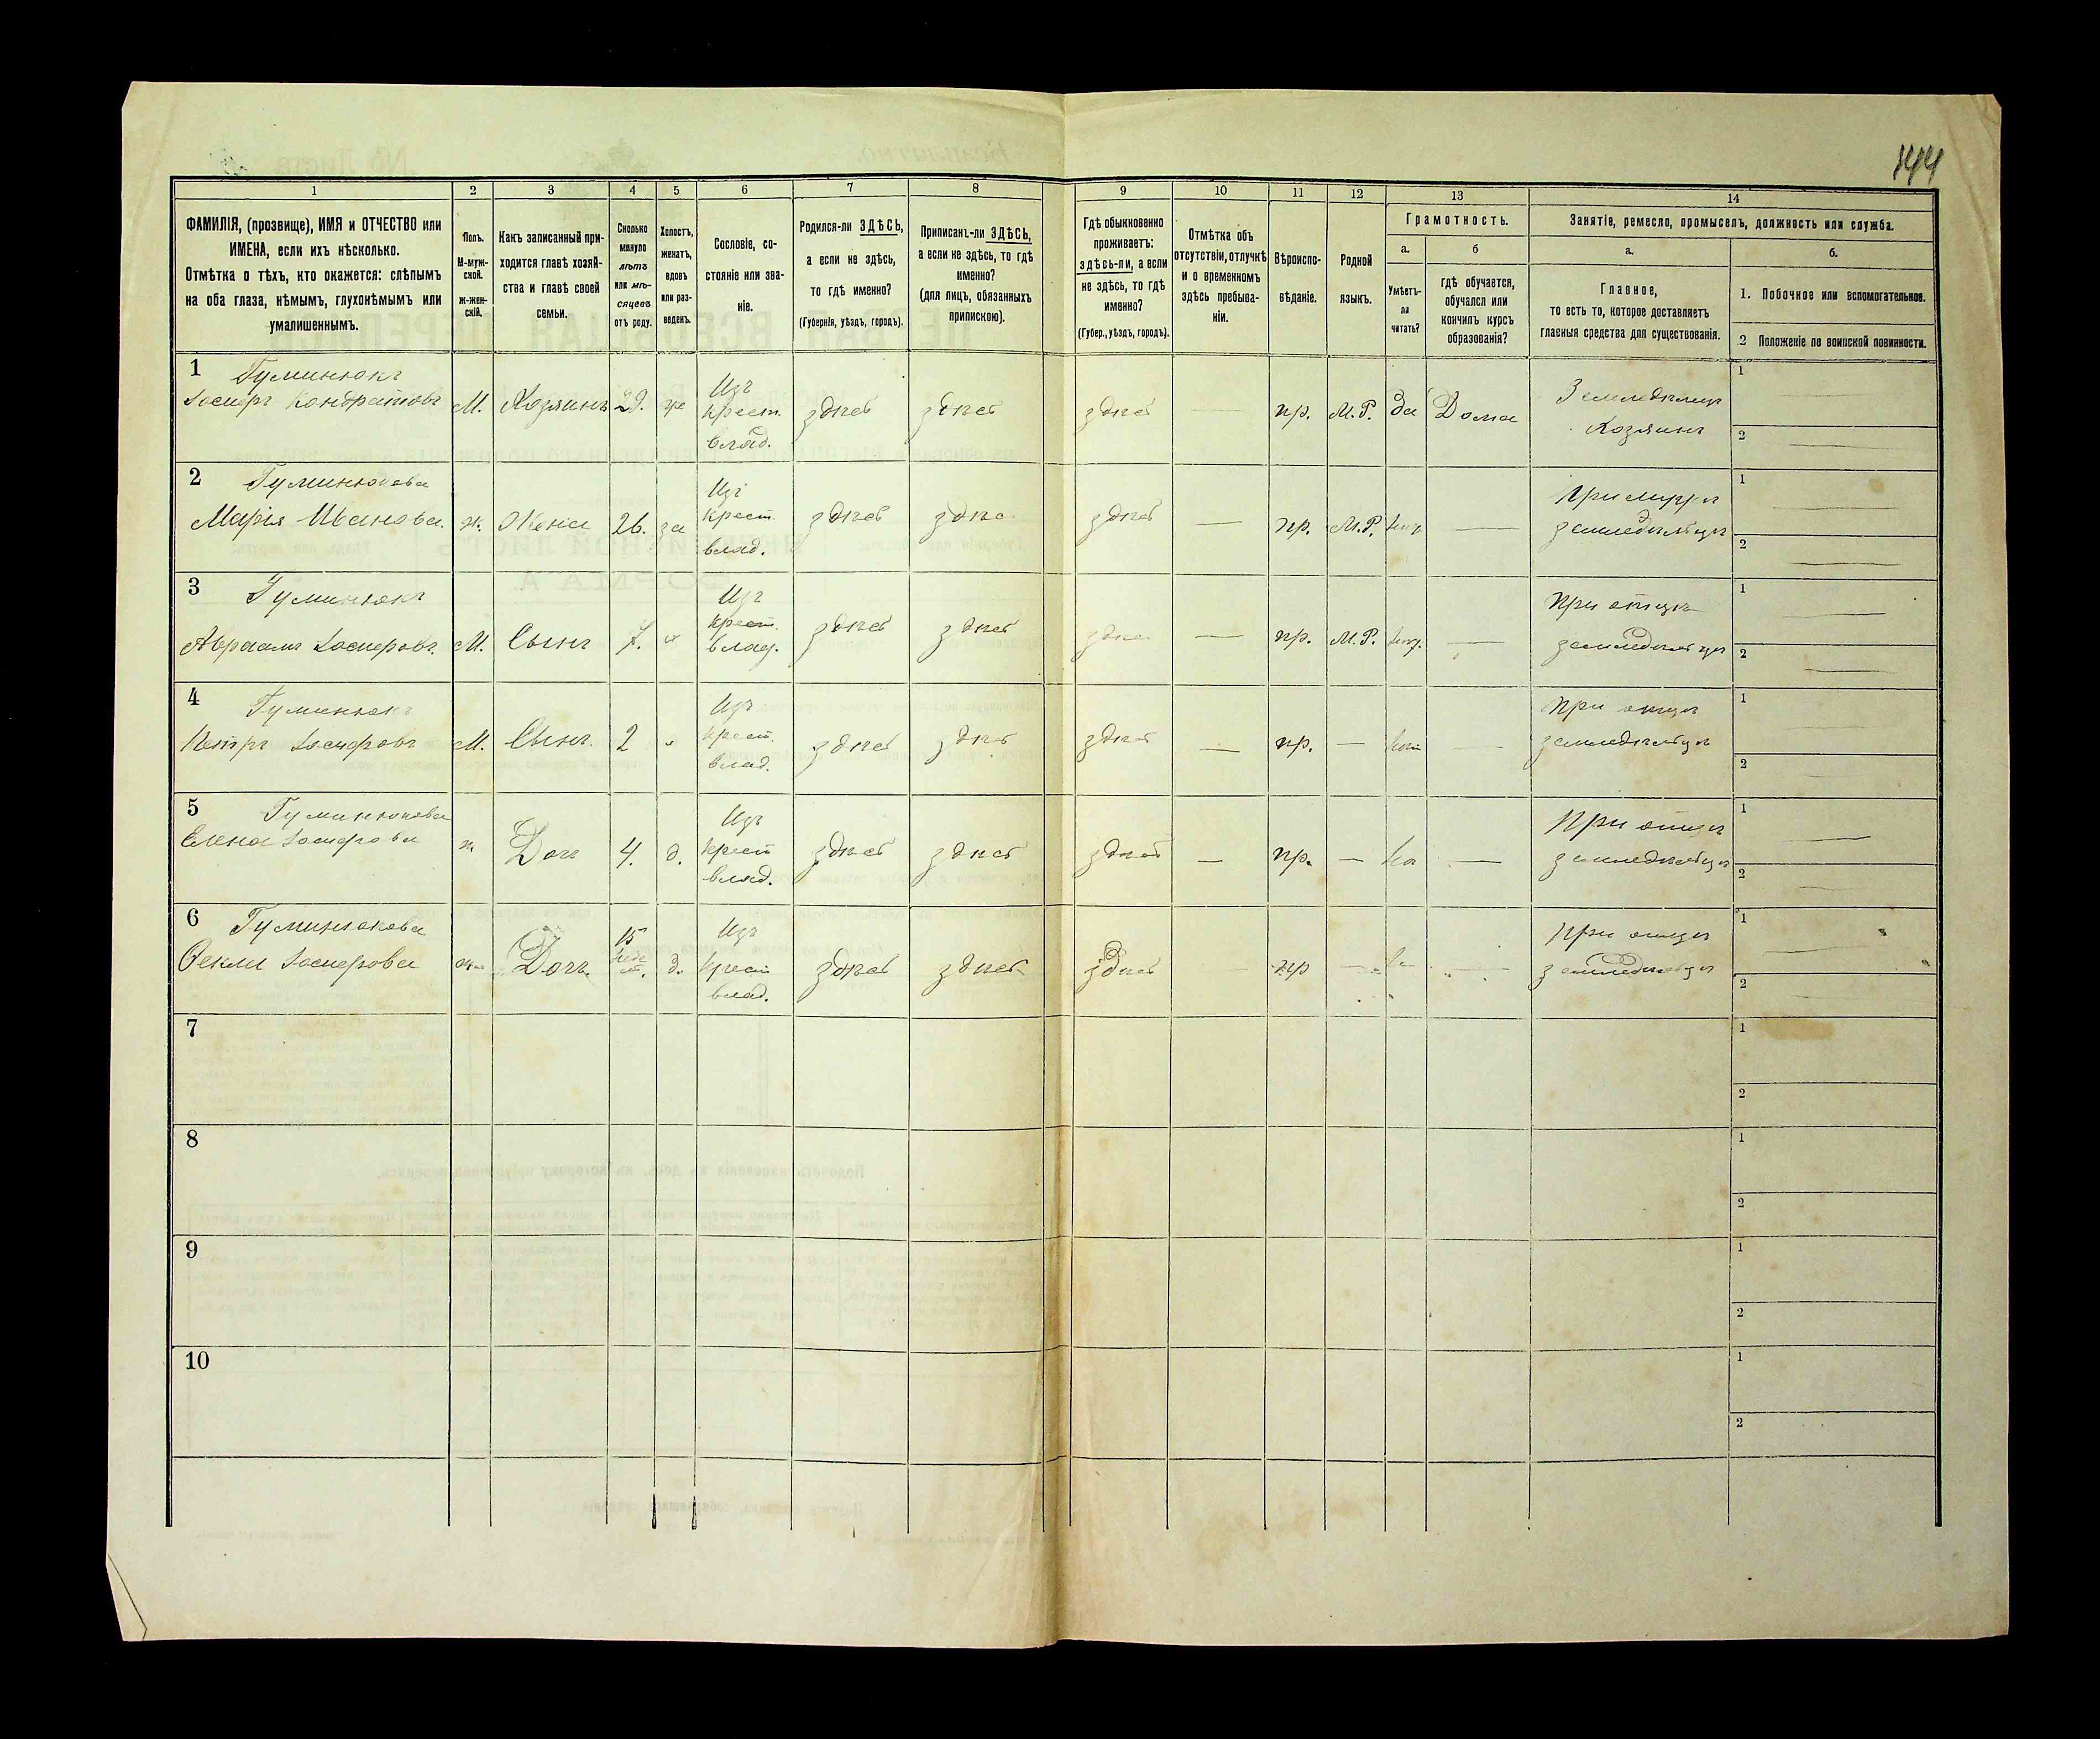 144
1 2 3 4 5 6 7 8 9 10 11 12 13 14
ФАМИЛІЯ, (прозвище), ИМЯ и ОТЧЕСТВО или
ИМЕНА, если ихъ нѣсколько.
Отмѣтка о тѣхъ, кто окажется: слѣпымъ
на оба глаза, нѣмымъ, глухонѣмымъ или
умалишеннымъ.
Полъ.
М-муж-
ской.
ж-жен-
скій.
Какъ записанный при-
ходится главѣ хозяй-
ства и главѣ своей
семьи.
Сколько
минуло
лѣтъ
или мѣ-
сяцевъ
отъ роду.
Холостъ,
женатъ,
вдовъ
или раз-
веденъ.
Сословіе, со-
стояніе или зва-
ніе.
Родился-ли ЗДѢСЬ,
а если не здѣсь,
то гдѣ именно?
(Губернія, уѣздъ, городъ).
Приписанъ-ли ЗДѢСЬ,
а если не здѣсь, то гдѣ
именно?
(для лицъ, обязанныхъ
припискою).
Гдѣ обыкновенно
проживаетъ:
здѣсь-ли, а если
не здѣсь, то гдѣ
именно?
(Губер., уѣздъ, городъ).
Отмѣтка объ
отсутствіи, отлучкѣ
и о временномъ
здѣсь пребыва-
ніи.
Вѣроиспо-
вѣданіе.
Родной
языкъ.
Грамотность.
а.
Умѣетъ-
ли
читать?
б
гдѣ обучается,
обучался или
кончилъ курсъ
образованія?
Занятіе, ремесло, промыселъ, должность или служба.
а.
Главное,
то есть то, которое доставляетъ
гласныя средства для существованія.
б.
1. Побочное или вспомогательное.
2 Положеніе по воинской повинности.
1 Гуминюкъ
Іосифъ Кондратовъ
М.
Хозяинъ
29.
же
Изъ
крест.
влад.
здѣсь
здѣсь
здѣсь
—
пр.
М.Р.
да
Дома
Земледѣлец
Хозяинъ
1 —
2 —
2 Гуминюкова
Марія Иванова.
ж.
Жена
26.
за
Изъ
крест.
влад.
здѣсь
здѣсь
здѣсь
—
пр.
М.Р.
—
земледѣльцѣ
1 —
2 —
3 Гуминюкъ
Авраамъ Іосифовъ.
М.
Сынъ
7.
Изъ
крест.
влад.
здѣсь
здѣсь
здѣсь
—
пр.
М.Р.
—
При отцѣ
земледѣльцѣ
1 —
2 —
4 Гуминюкъ
Петръ Іосифовъ
М.
Сынъ.
2
Изъ
крест.
влад.
здѣсь
здѣсь
здѣсь
—
пр.
—
—
При отцѣ
земледѣльцѣ
1
2
5 Гуминюкова
Елена Іосифова
ж
Доч
4.
д.
Изъ
крест
влад.
здѣсь
здѣсь
здѣсь
—
пр.
—
—
При отцѣ
земледѣльцѣ
1 —
2 —
6 Гуминюкова
Ѳекла Іосифова
ж
Дочъ
15
д.
Изъ
крест
влад.
здѣсь
здѣсь
здѣсь
пр
—
—
При отцѣ
земледѣльцѣ
1 —
2
7
1
2
8
1
2
9
1
2
10
1
2